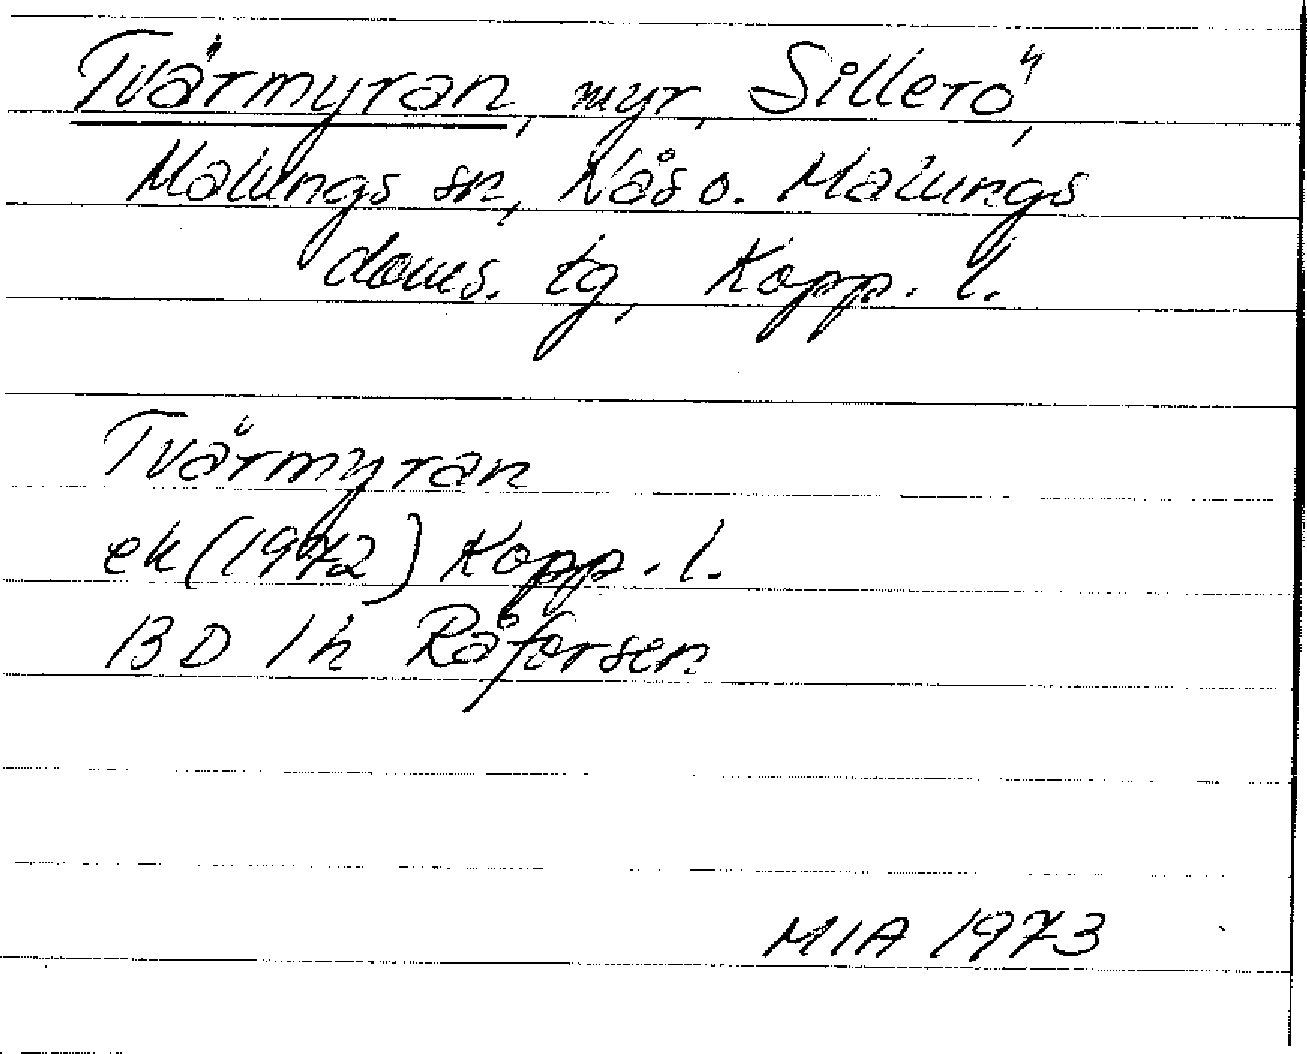 Tvärmyran, myr, Sillerö,
Malungs sn, Nås o. Malungs
doms. tg, Kopp. l.
Tvärmyran
ek (1972) Kopp. l.
13 D 1 h Råforsen
MIA 1973